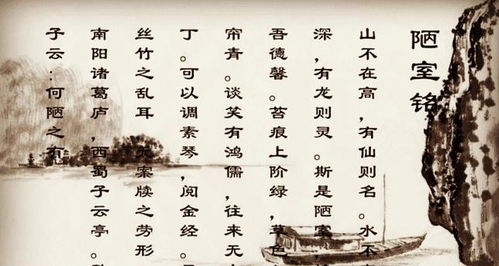 陋室铭
山不在高,有仙则名。水不
深,有龙则灵。斯是陋室,
吾德馨。苔痕上阶绿,草色
帘青。谈笑有鸿儒,往来无
丁。可以调素琴,阅金经。
丝竹之乱耳 无案牍之劳形
南阳诸葛庐,西蜀子云亭。
子云:何陋之有